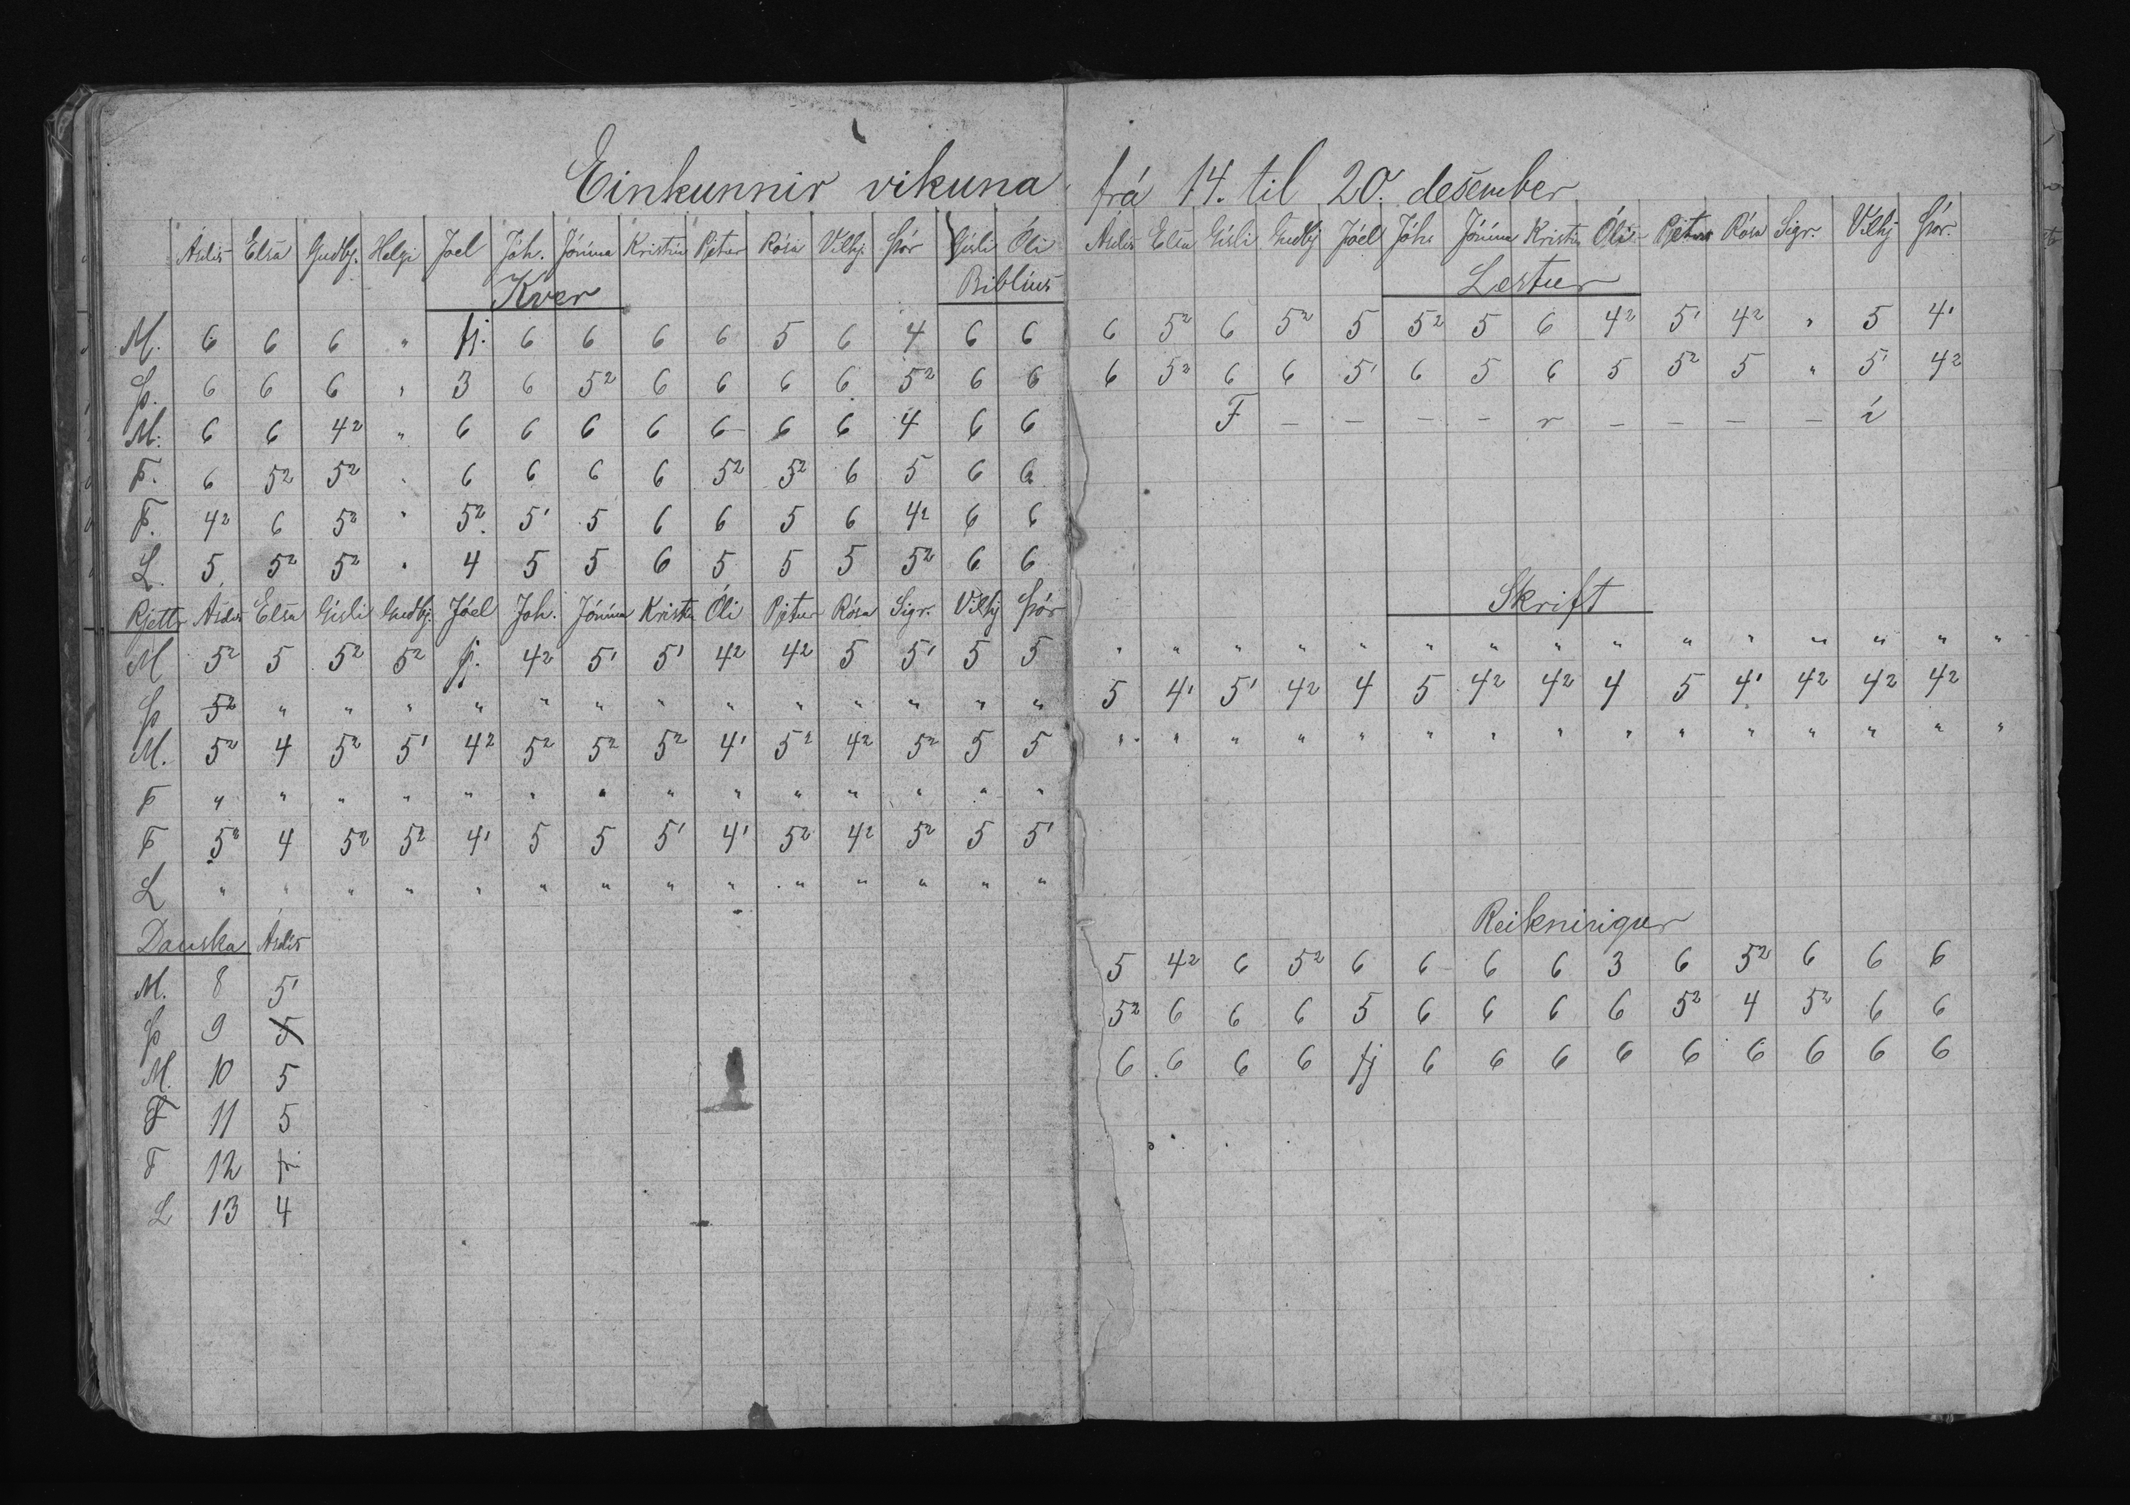 Einkunnir vikuna frá 14. til 20. desember
Ásdís Elsa Guðbj. Helgi Jóel Jóh. Jónína Kristín Pjetur Rósa Vilhj. Þór Gísli Óli
Kver Biblíus
M. 6 6 6 " fj. 6 6 6 6 5 6 4 6 6
Þ. 6 6 6 " 3 6 5² 6 6 6 6 5² 6 6
M. 6 6 4² " 6 6 6 6 6 6 6 4 6 6
F. 6 5² 5² " 6 6 6 6 5² 5² 6 5 6 6
F. 4² 6 5² " 5² 5¹ 5 6 6 5 6 4² 6 6
L. 5 5² 5² " 4 5 5 6 5 5 5 5² 6 6
Rjettr Ásdís Elsa Gísli Guðbj. Jóel Joh. Jónína Kristín Óli Pjetur Rósa Sigr. Vilhj Þór
M 5² 5 5² 5² fj. 4² 5¹ 5¹ 4² 4² 5 5¹ 5 5
Þ 5² " " " " " " " " " " " " "
M. 5² 4 5² 5¹ 4² 5² 5² 5² 4¹ 5² 4² 5² 5 5
F " " " " " " " " " " " " " "
F 5² 4 5² 5² 4¹ 5 5 5¹ 4¹ 5² 4² 5² 5 5¹
L " " " " " " " " " " " " " "
Danska Ásdís
M. 8 5¹
Þ 9 5
M. 10 5
F 11 5
F 12 fr
L 13 4
Ásdís Elsa Gísli Guðbj Jóel Jóh. Jónína Kristín Óli Pjetur Rósa Sigr. Vilhj Þór.
Lestur
6 5² 6 5² 5 5² 5 6 4² 5¹ 4² " 5 4¹
6 5² 6 6 5¹ 6 5 6 5 5² 5 " 5¹ 4²
F – – – – r – – – – í
Skrift
" " " " " " " " " " " " " " "
5 4¹ 5¹ 4² 4 5 4² 4² 4 5 4¹ 4² 4² 4²
" " " " " " " " " " " " " " "
Reikningur
5 4² 6 5² 6 6 6 6 3 6 5² 6 6 6
5² 6 6 6 5 6 6 6 6 5² 4 5² 6 6
6 6 6 6 fj 6 6 6 6 6 6 6 6 6